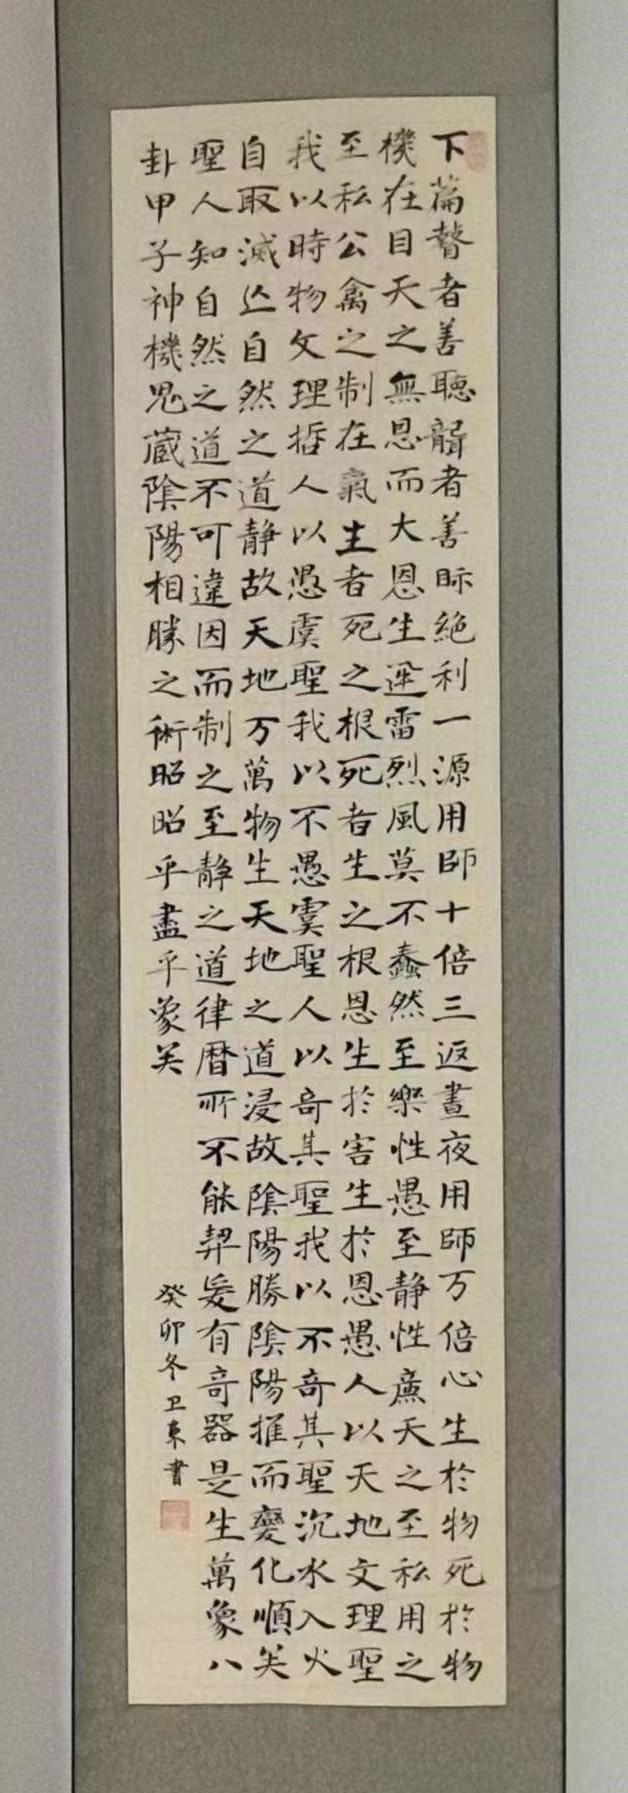 下篇瞽者善聽聾者善眎絶利一源用師十倍三返晝夜用師万倍心生於物死於物
機在目天之無恩而大恩生迅雷烈風莫不蠢然至樂性愚至靜性廉天之至私用之
至私公禽之制在氣生者死之根死者生之根恩生於害害生於恩愚人以天地文理聖
我以時物文理哲人以愚虞聖我以不愚虞聖人以奇其聖我以不奇其聖沉水入火
自取滅亾自然之道静故天地万萬物生天地之道浸故陰陽勝陰陽推而變化順矣
聖人知自然之道不可違因而制之至静之道律曆所不能契爰有奇器是生萬象八
卦甲子神機鬼藏陰陽相勝之術昭昭乎盡乎象矣
癸卯冬卫東書